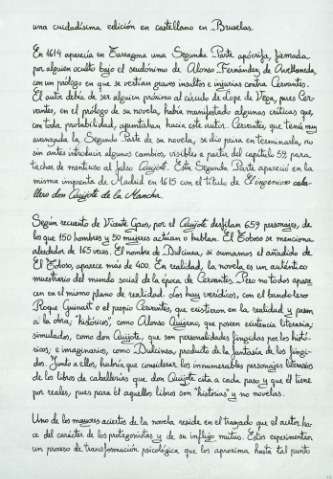 una cuidadísima edición en castellano en Bruselas.
En 1614 aparecía en Tarragona una Segunda Parte apócrifa, firmada
por alguien oculto bajo el seudónimo de Alonso Fernández de Avellaneda,
con un prólogo en que se vertían graves insultos e injurias contra Cervantes.
El autor debía de ser alguien próximo al círculo de Lope de Vega, pues Cer-
vantes, en el prólogo de su novela, había manifestado algunas críticas que,
con toda probabilidad, apuntaban hacia este autor. Cervantes, que tenía muy
avanzada la Segunda Parte de su novela, se dio prisa en terminarla, no
sin antes introducir algunos cambios, visibles a partir del capítulo 59, para
tachar de mentiroso al falso Quijote. Esta Segunda Parte apareció en la
misma imprenta de Madrid en 1615 con el título de El ingenioso caba-
llero don Quijote de la Mancha.
Según recuento de Vicente Gaos, por el Quijote desfilan 659 personajes, de
los que 150 hombres y 50 mujeres actúan o hablan. El Toboso se menciona
alrededor de 165 veces. El nombre de Dulcinea, si sumamos el añadido de
El Toboso, aparece más de 400. En realidad, la novela es un auténtico
muestrario del mundo social de la época de Cervantes. Pero no todos apare
cen en el mismo plano de realidad. Los hay verídicos, con el bandolero
Roque Guinart o el propio Cervantes, que existieron en la realidad y pasan
a la obra; históricos, como Alonso Quijano, que poseen existencia literaria;
simulados, como don Quijote, que son personalidades fingidas por los histó-
ricos; e imaginarios, como Dulcinea, producto de la fantasía de los fingi-
dos. Junto a ellos, habría que considerar los innumerables personajes literarios
de los libros de caballerías que don Quijote cita a cada paso y que él tiene
por reales, pues para él aquellos libros son "historias" y no novelas.
Uno de los mayores aciertos de la novela reside en el trazado que el autor ha-
ce del carácter de los protagonistas y de su influjo mutuo. Estos experimentan
un proceso de transformación psicológica que los aproxima hasta tal punto